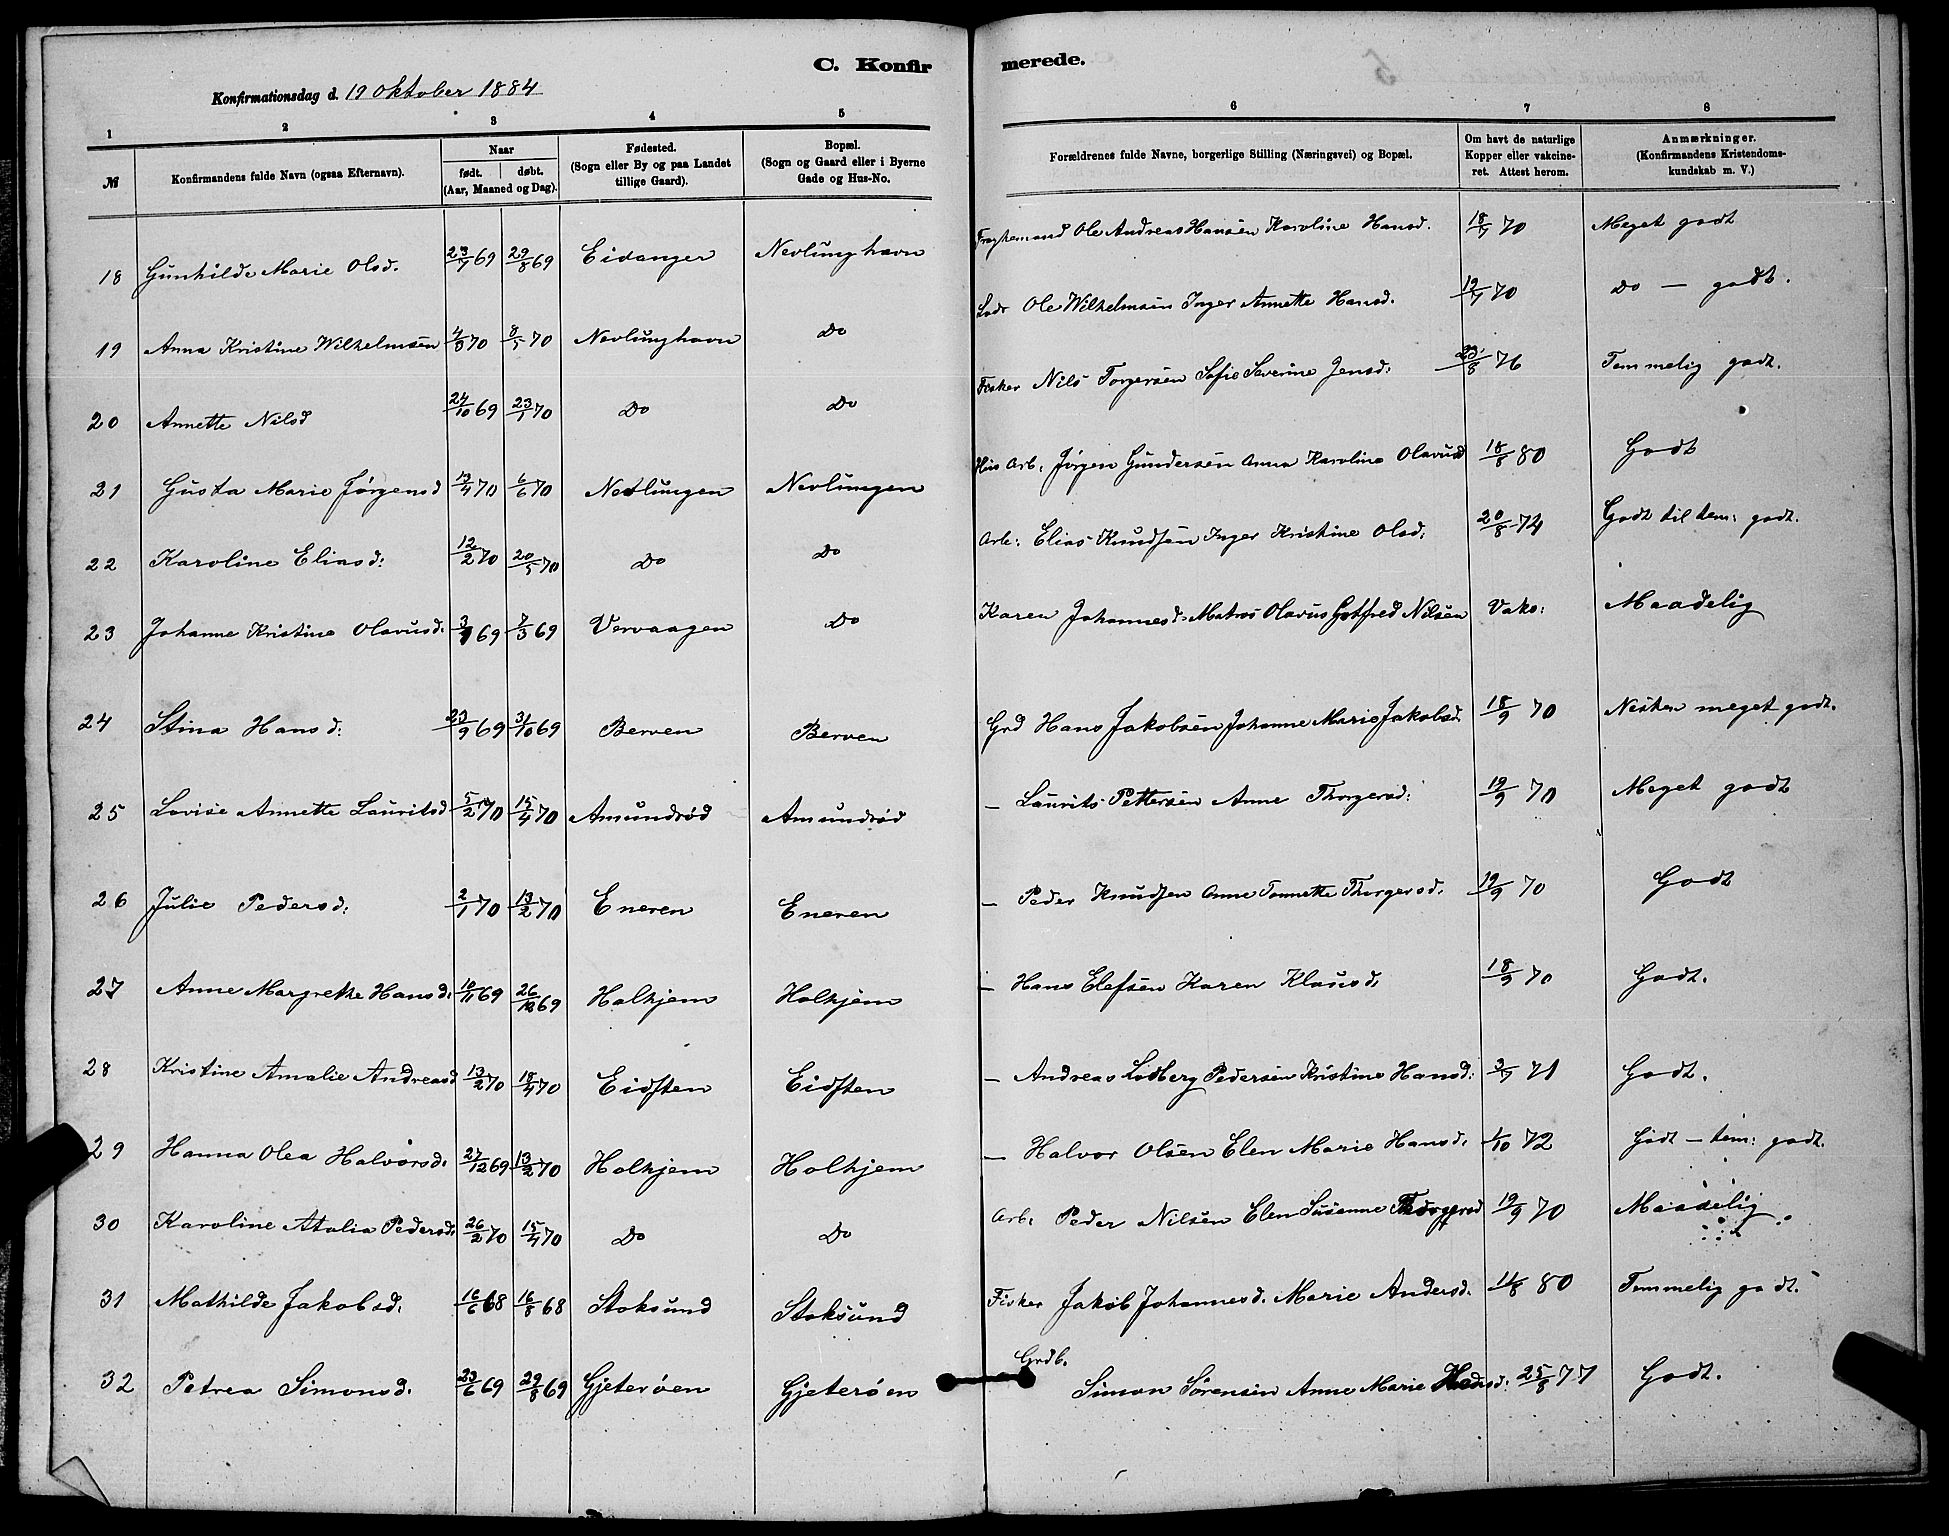 C. Konfirmerede.
Konfirmationsdag d. 19 Oktober 1884
1 2 3 4 5 6 7 8
№ Konfirmandens fulde Navn (ogsaa Efternavn). Naar født. døbt. (Aar, Maaned og Dag). Fødested. (Sogn eller By og paa Landet tillige Gaard). Bopæl. (Sogn og Gaard eller i Byerne Gade og Hus-No. Forældrenes fulde Navne, borgerlige Stilling (Næringsvei) og Bopæl. Om havt de naturlige Kopper eller vakcineret. Attest herom. Anmærkninger. (Konfirmandens Kristendomskundskab m. V.)
18 Gunhilde Marie Olsd. 23/7 69 29/8 69 Eidanger Nevlunghavn Ole Andreas Hansen Karoline Hansd. 18/7 70 Meget godt
19 Anna Kristine Wilhelmsen 4/3 70 8/5 70 Nevlunghavn Do Lods Ole Wilhelmsen Inger Annette Hansd. 19/7 70 Do — godt.
20 Annette Nilsd 24/10 69 23/1 70 Do Do Fisker Nils Torgersen Sofie Severine Jensd: 23/8 76 Temmelig godt.
21 Gusta Marie Jørgensd 13/4 70 6/6 70 Nevlungen Nevlungen Hus Arb. Jørgen Gundersen Anna Karoline Olavusd 18/8 80 Godt
22 Karoline Eliasd: 12/2 70 20/5 70 Do Do Arb: Elias Knudsen Inger Kristine Olsd: 20/8 74 Godt til tem: godt.
23 Johanne Kristine Olavusd. 69 7/3 69 Vervaagen Do Karen Johannesd. Matros Olavus Gotfred Nilsen Vaks: Maadelig
24 Stina Hansd: 23/9 69 31/10 69 Berven Berven Grd Hans Jakobsen Johanne Marie Jakobsd. 18/9 70 Næsten meget godt.
25 Lovise Annette Lauritsd 5/2 70 15/4 70 Amundrød Amundrød — Laurits Pettersen Anne Thorgersd: 19/9 70 Meget godt
26 Julie Pedersd: 2/1 70 13/2 70 Eneren Eneren — Peder Knudsen Anne Tonnette Thorgersd. 19/9 70 Godt
27 Anne Margrethe Hansd. 10/11 69 26/12 69 Holkjem Holkjem — Hans Elefsen Karen Klausd. 18/9 70 Godt.
28 Kristine Amalie Andreasd 13/2 70 18/4 70 Eidsten Eidsten — Andreas Lodberg Pedersen Kristine Hansd: 3/7 71 Godt.
29 Hanna Olea Halvorsd. 27/12 69 13/2 70 Holkjem Holkjem — Halvor Olsen Elen Marie Hansd. 1/10 72 Godt — tem: godt.
30 Karoline Atalia Pedersd. 26/2 70 15/4 70 Do Do Arb. Peder Nilsen Elen Susanne Thorgersd 19/9 70 Maadelig.
31 Mathilde Jakobsd. 16/6 68 16/8 68 Stoksund Stoksund Fisker Jakob Johannesd. Marie Andersd. 11/8 80 Temmelig godt.
32 Petrea Simonsd. 23/6 69 29/8 69 Gjeterøen Gjeterøen Grdb. Simon Sørensen Anne Marie Hansd: 25/8 77 Godt.